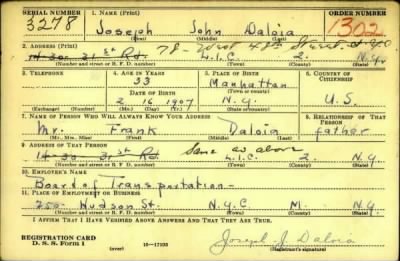 SERIAL NUMBER 1. NAME (Print) ORDER NUMBER
3278 Joseph John Daloia 1302
(First) (Middle) (Last)
2. ADDRESS (Print) 78- West 48th Street
14-30 31st Rd. L.I.C. 2. N.Y.
(Number and street or R. F. D. number) (Town) (County) (State)
3. TELEPHONE 4. AGE IN YEARS 5. PLACE OF BIRTH 6. COUNTRY OF CITIZENSHIP
33 Manhattan
DATE OF BIRTH (Town or county)
2 16 1907 N.Y. U.S.
(Exchange) (Number) (Mo.) (Day) (Yr.) (State or country)
7. NAME OF PERSON WHO WILL ALWAYS KNOW YOUR ADDRESS 8. RELATIONSHIP OF THAT PERSON
Mr. Frank Daloia father
(Mr., Mrs., Miss) (First) (Middle) (Last)
9. ADDRESS OF THAT PERSON Same as above
14-30 31st Rd. L.I.C. 2. N.Y.
(Number and street or R. F. D. number) (Town) (County) (State)
10. EMPLOYER'S NAME
Board of Transportation-
11. PLACE OF EMPLOYMENT OR BUSINESS
250- Hudson St. N.Y.C. M. N.Y.
(Number and street or R. F. D. number) (Town) (County) (State)
I AFFIRM THAT I HAVE VERIFIED ABOVE ANSWERS AND THAT THEY ARE TRUE.
REGISTRATION CARD
D. S. S. Form 1 (over) 16-17105 Joseph J Daloia
(Registrant's signature)